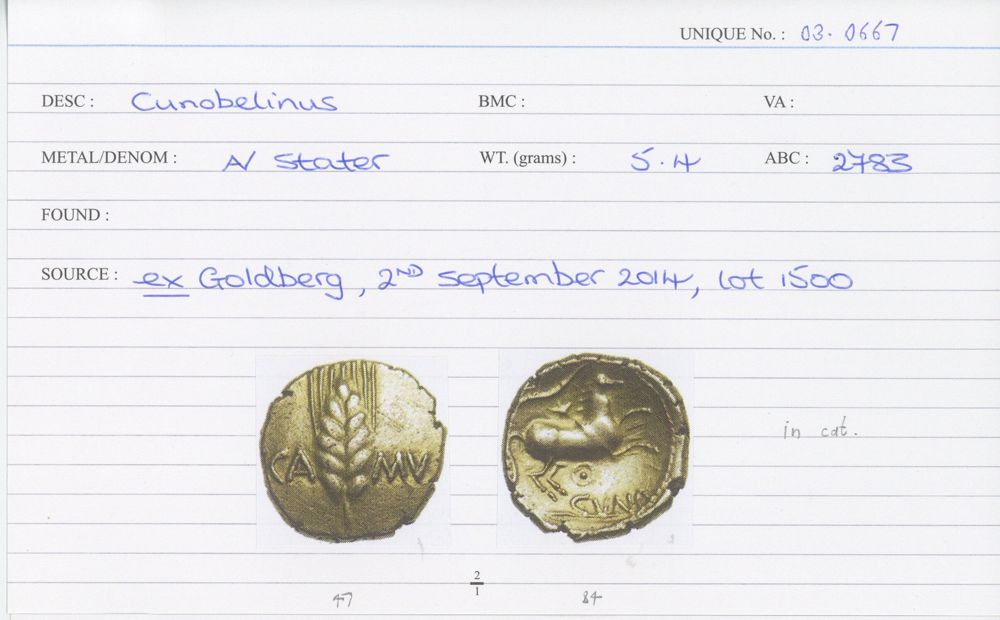 UNIQUE No. : 03.0667
DESC : Cunobelinus BMC : VA :
METAL/DENOM : A/ Stater WT. (grams) : 5.4 ABC : 2783
FOUND :
SOURCE : ex Goldberg, 2ND September 2014, lot 1500
in cat.
CA MV
CVNO
2
1
47 84